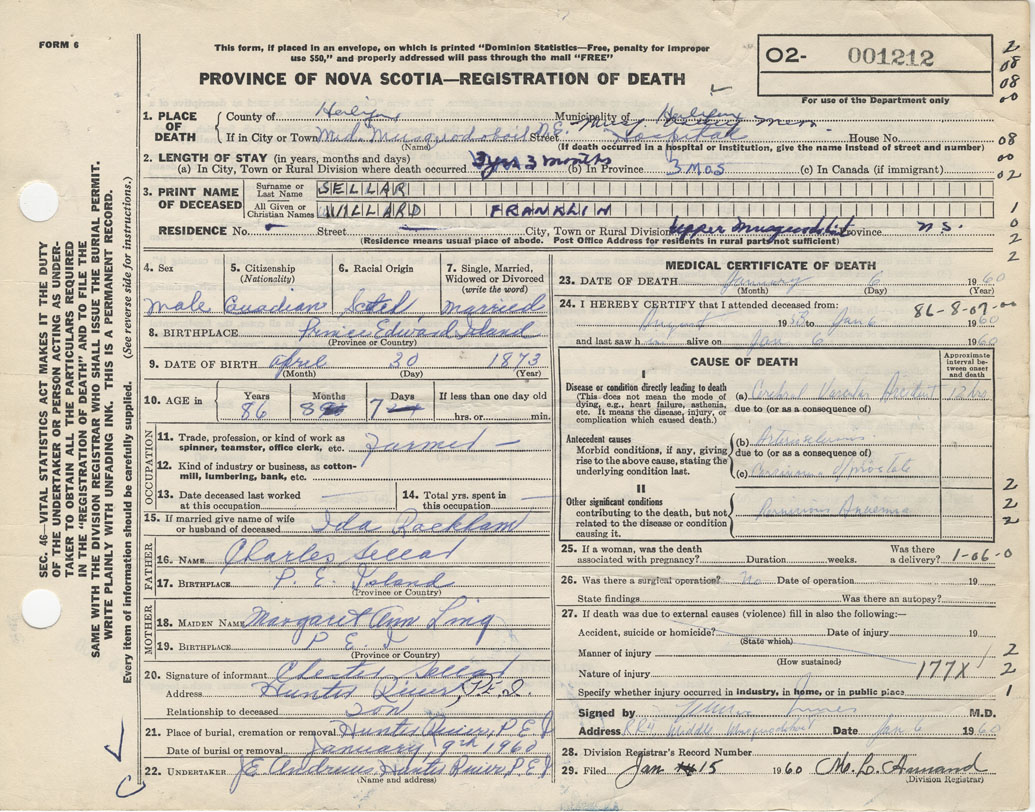 FORM 6
This form, if placed in an envelope, on which is printed "Dominion Statistics—Free, penalty for improper
use $50," and properly addressed will pass through the mail "FREE"
PROVINCE OF NOVA SCOTIA—REGISTRATION OF DEATH
O2- 001212
For use of the Department only
2
08
08
00
1. PLACE OF DEATH
County of Halifax Municipality of Halifax
If in City or Town Mid. Musquodoboit Street Hospital House No.
(Name) (If death occurred in a hospital or institution, give the name instead of street and number)
08
2. LENGTH OF STAY (in years, months and days)
(a) In City, Town or Rural Division where death occurred 3 months (b) In Province 3 mos (c) In Canada (if immigrant)
00
02
3. PRINT NAME OF DECEASED
Surname or Last Name SELLAR
All Given or Christian Names WILLARD FRANKLIN
1
0
2
2
RESIDENCE No. - Street — City, Town or Rural Division Upper Musquodoboit Province N.S.
(Residence means usual place of abode. Post Office Address for residents in rural parts not sufficient)
4. Sex
Male
5. Citizenship
(Nationality)
Canadian
6. Racial Origin
7. Single, Married,
Widowed or Divorced
(write the word)
Married
8. BIRTHPLACE Prince Edward Island
(Province or Country)
9. DATE OF BIRTH April 30 1873
(Month) (Day) (Year)
10. AGE in
Years Months Days If less than one day old
86 8 7 hrs. or min.
OCCUPATION
11. Trade, profession, or kind of work as
spinner, teamster, office clerk, etc. Farmer —
12. Kind of industry or business, as cotton-
mill, lumbering, bank, etc.
13. Date deceased last worked
at this occupation
14. Total yrs. spent in
this occupation
15. If married give name of wife
or husband of deceased Ida Rackham
FATHER
16. NAME Charles Sellar
17. BIRTHPLACE P. E. Island
(Province or Country)
MOTHER
18. MAIDEN NAME Margaret Ann Ling
19. BIRTHPLACE P E I
(Province or Country)
20. Signature of informant Chester Sellar
Address Hunter River, P.E.I.
Relationship to deceased Son
21. Place of burial, cremation or removal Hunter River, P E I
Date of burial or removal January, 9th 1960
22. UNDERTAKER Andrews Hunter River P E I
(Name and address)
MEDICAL CERTIFICATE OF DEATH
23. DATE OF DEATH January 6 1960
(Month) (Day) (Year)
24. I HEREBY CERTIFY that I attended deceased from:
86-8-07-00
August 19 to Jan 6 1960
and last saw him alive on Jan 6 1960
CAUSE OF DEATH
Approximate interval between onset and death
I
Disease or condition directly leading to death
(This does not mean the mode of
dying, e.g., heart failure, asthenia,
etc. It means the disease, injury, or
complication which caused death.)
(a) Cerebral Vascular Accident 12 hrs
due to (or as a consequence of)
Antecedent causes
Morbid conditions, if any, giving
rise to the above cause, stating the
underlying condition last.
(b) Arteriosclerosis
due to (or as a consequence of)
(c) Carcinoma of prostate
II
Other significant conditions
contributing to the death, but not
related to the disease or condition
causing it.
Pernicious Anaemia
2
2
2
25. If a woman, was the death
associated with pregnancy? Duration weeks. Was there
a delivery? 1-06-0
26. Was there a surgical operation? No Date of operation 19
State findings Was there an autopsy?
27. If death was due to external causes (violence) fill in also the following:—
Accident, suicide or homicide? Date of injury 19
(State which)
Manner of injury
(How sustained)
Nature of injury 177X
Specify whether injury occurred in industry, in home, or in public place
2
2
1
Signed by M.D.
Address R.R.4, Middle Musquodoboit Date Jan 6 1960
28. Division Registrar's Record Number
29. Filed Jan 15 1960
(Division Registrar)
SEC. 46—VITAL STATISTICS ACT MAKES IT THE DUTY
OF THE UNDERTAKER OR PERSON ACTING AS UNDER-
TAKER TO OBTAIN ALL THE PARTICULARS REQUIRED
IN THE "REGISTRATION OF DEATH" AND TO FILE THE
SAME WITH THE DIVISION REGISTRAR WHO SHALL ISSUE THE BURIAL PERMIT.
WRITE PLAINLY WITH UNFADING INK. THIS IS A PERMANENT RECORD.
Every item of information should be carefully supplied. (See reverse side for instructions.)